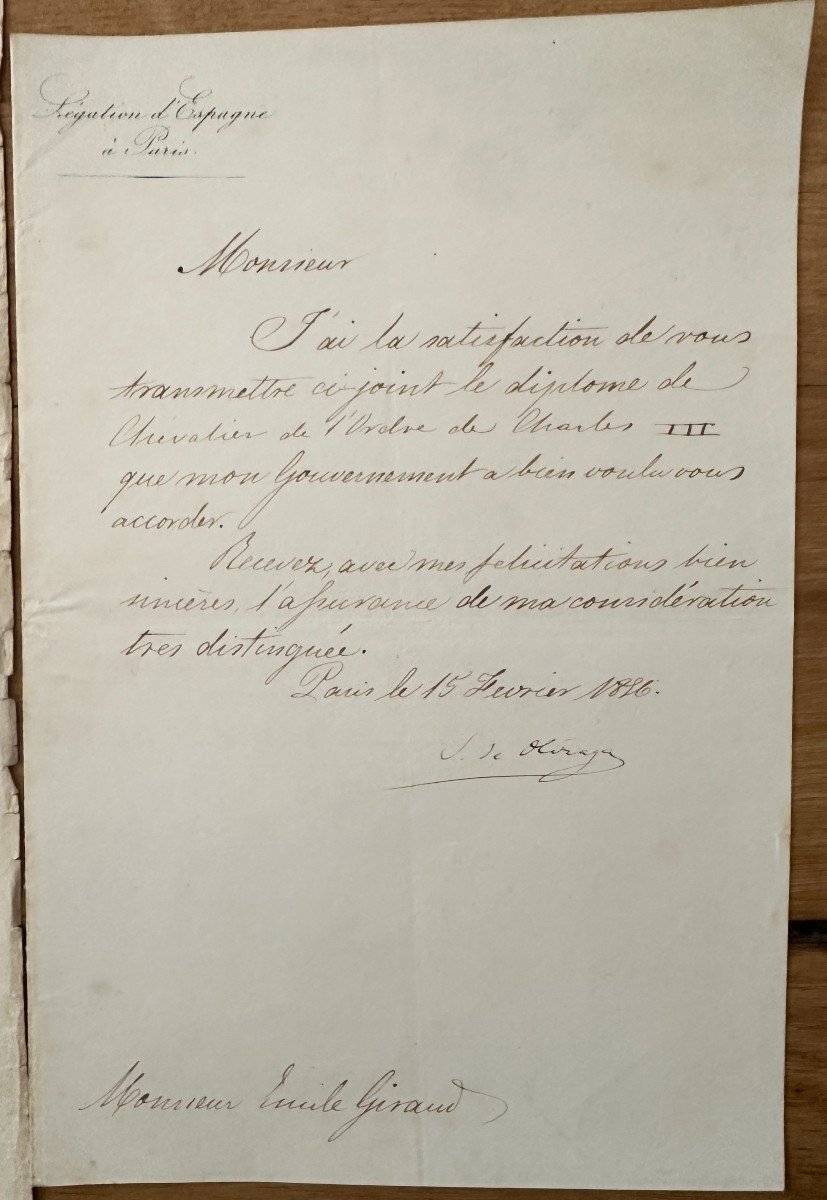 Légation d'Espagne
à Paris.
Monsieur
J'ai la satisfaction de vous
transmettre ci-joint le diplome de
Chevalier de l'Ordre de Charles III
que mon Gouvernement a bien voulu vous
accorder.
Recevez, avec mes felicitations bien
sincères, l'assurance de ma considération
tres distinguée.
Paris le 15 Fevrier 1856.
S. de Olózaga
Monsieur Emile Giraud